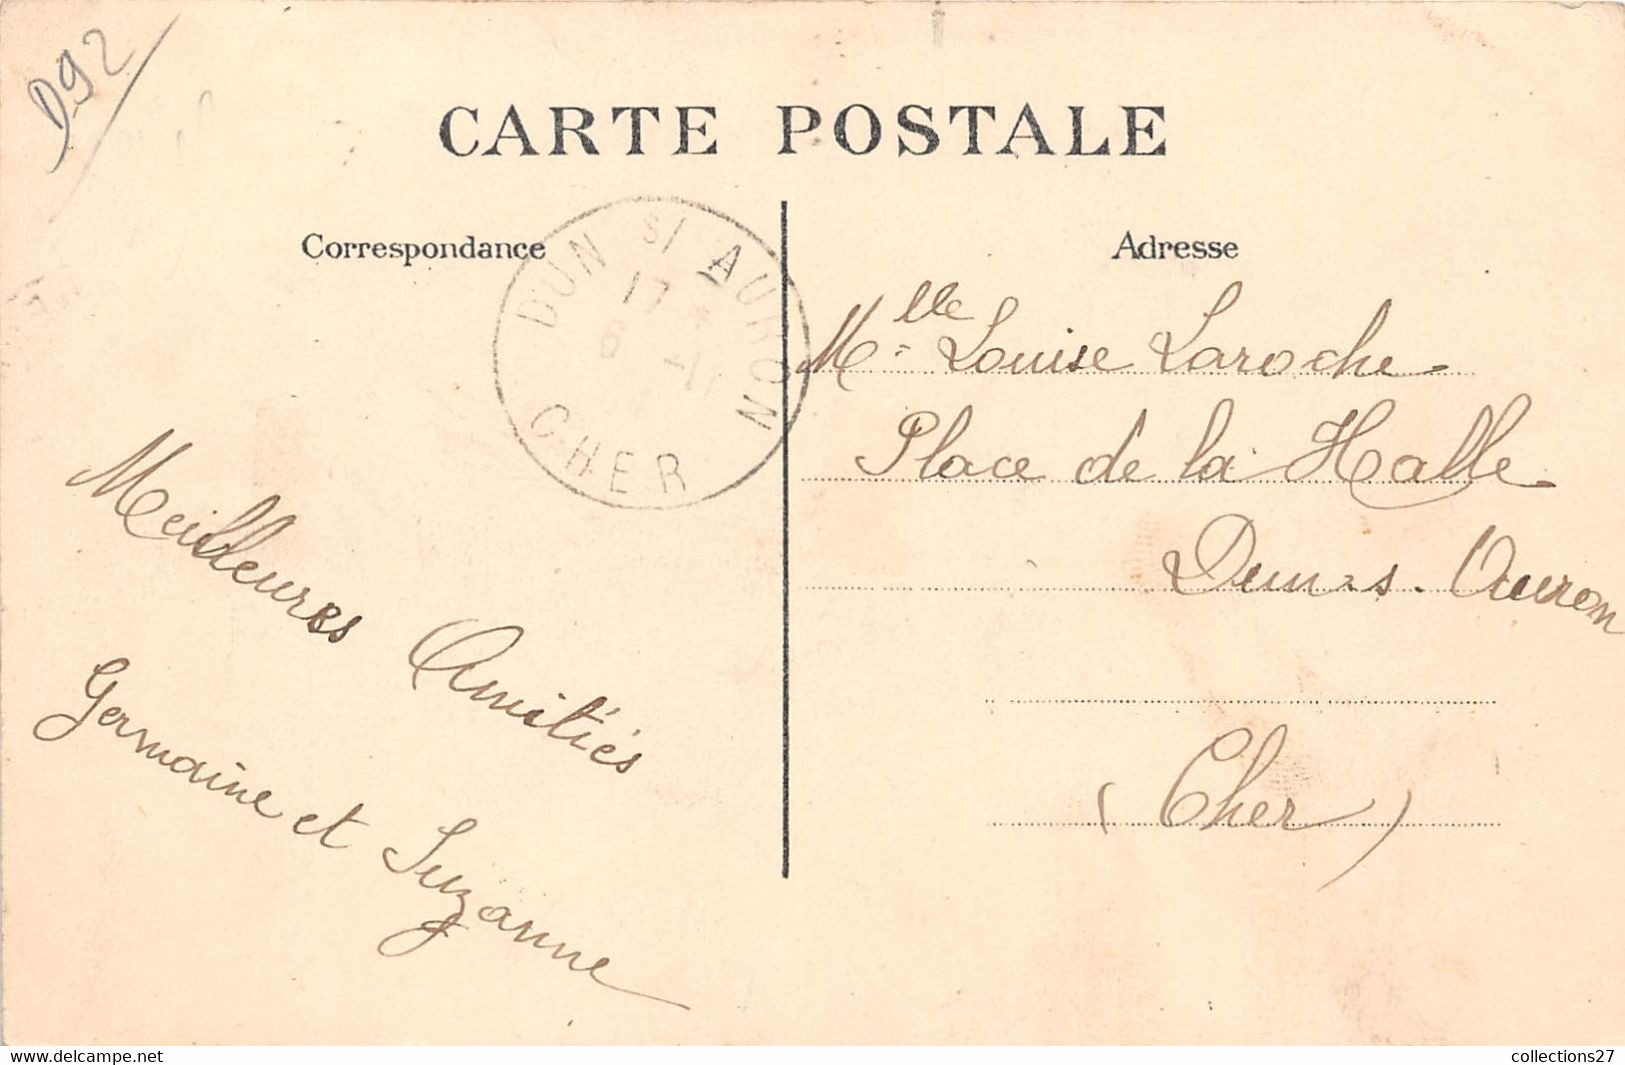 D92
CARTE POSTALE
Correspondance
DUN S/ AURON
17
6
CHER
Adresse
Mlle Louise Laroche
Place de la Halle
Dun-s-Auron
(Cher)
Meilleures Amitiés
Germaine et Suzanne
collections27